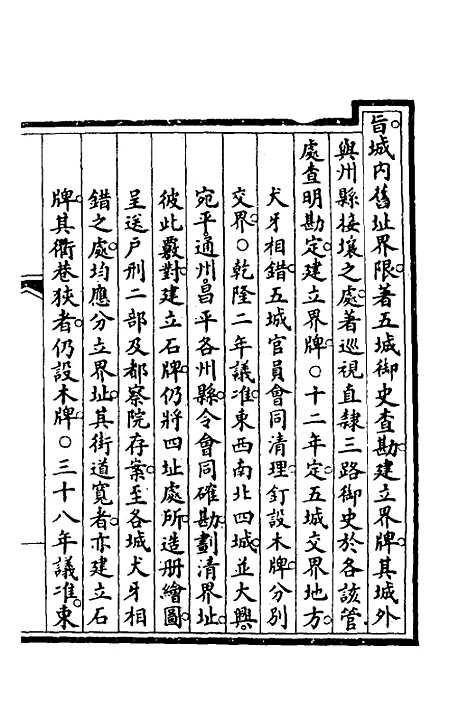 旨。城內舊址界限。著五城御史查勘。建立界牌。其城外
與州縣接壤之處。著巡視直隸三路御史於各該管
處查明勘定。建立界牌。○十二年定。五城交界地方。
犬牙相錯。五城官員會同清理。釘設木牌。分別
交界。○乾隆二年議准。東西南北四城。並大興。
宛平。通州。昌平各州縣。令會同確勘。劃清界址。
彼此覈對。建立石牌。仍將四址處所。造册繪圖。
呈送戶刑二部及都察院存案。至各城犬牙相
錯之處。均應分立界址。其街道寬者。亦建立石
牌。其衚巷狹者。仍設木牌。○三十八年議准。東